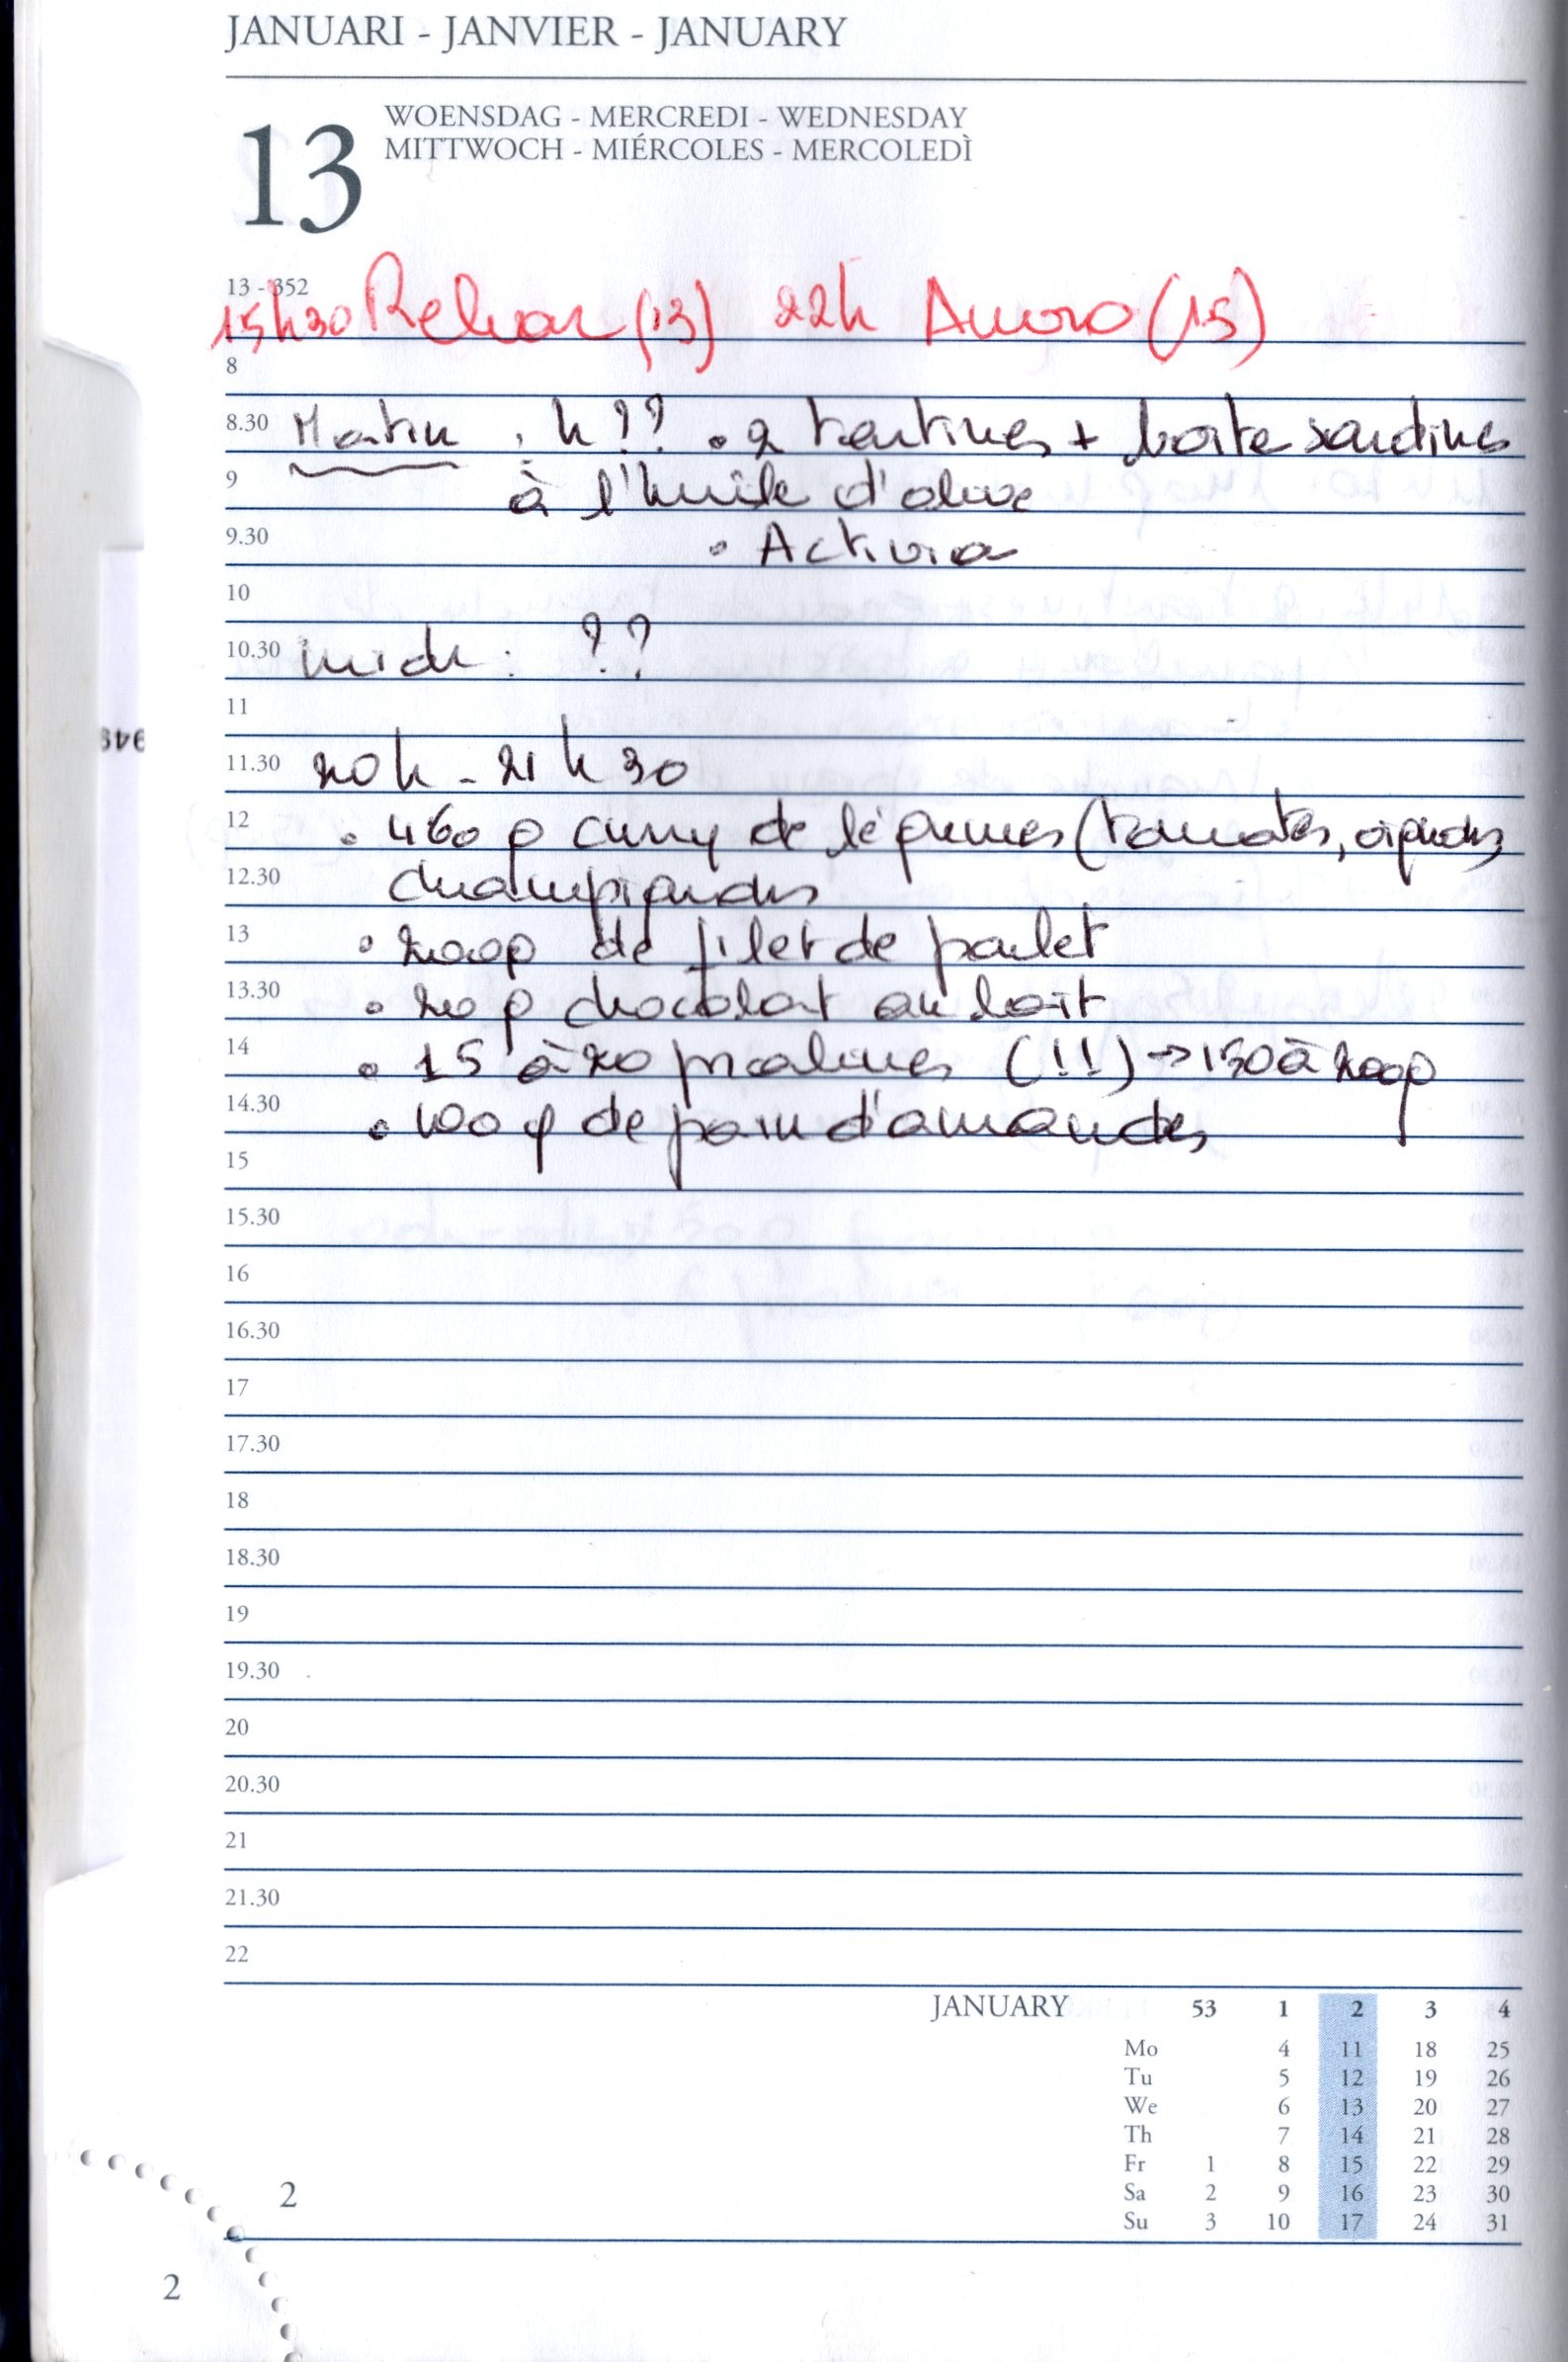 JANUARI - JANVIER - JANUARY
13
WOENSDAG - MERCREDI - WEDNESDAY
MITTWOCH - MIÉRCOLES - MERCOLEDÌ
13 - 352
15h30 (13) 22h (15)
8
8.30 Matin : h ?? • 2 tartines + boite sardines
9 à l'huile d'olive
9.30 • Activia
10
10.30 midi : ??
11
11.30 20h - 21h30
12 • 460 g curry de légumes (tomates, oignons,
12.30 champignons
13 • 200g de filet de poulet
13.30 • 20 g chocolat au lait
14 • 15 à 20 pralines (!!) → 150 à 200g
14.30 • 100 g de pain d'amandes
15
15.30
16
16.30
17
17.30
18
18.30
19
19.30
20
20.30
21
21.30
22
JANUARY 53 1 2 3 4
Mo 4 11 18 25
Tu 5 12 19 26
We 6 13 20 27
Th 7 14 21 28
Fr 1 8 15 22 29
Sa 2 9 16 23 30
Su 3 10 17 24 31
2
2